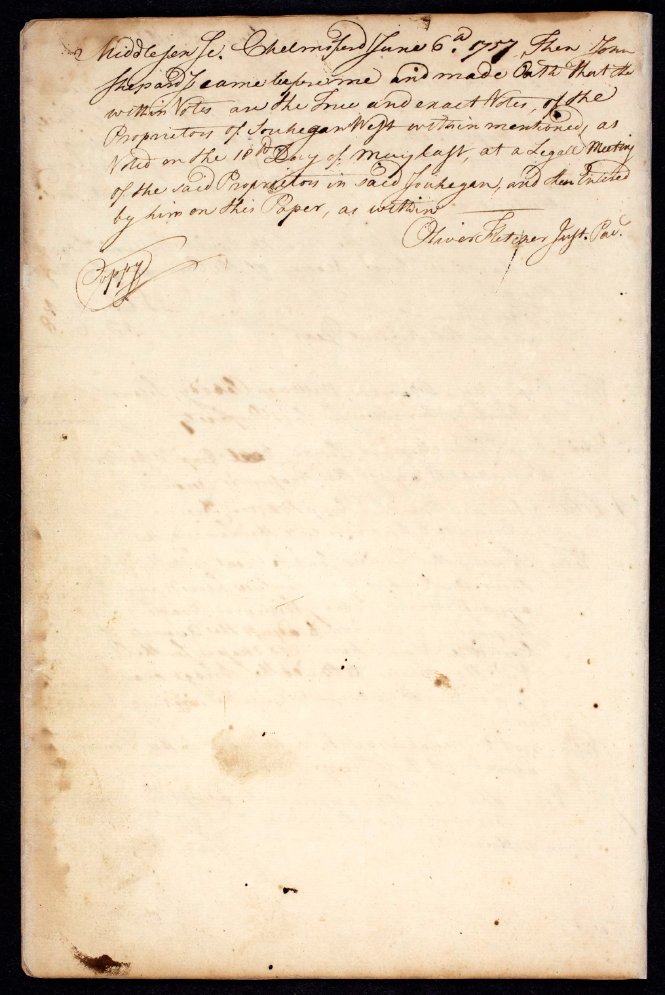 Middlesex Sc. Chelmsford June 6.ᵃ 1757 Then John
Shepard came before me and made Oath that the
within Votes are the True and exact Votes, of the
Proprietors of Souhegan West within mentioned, as
Voted on the 18th Day of may last, at a Legall Meeting
of the said Proprietors in said Souhegan, and then Entered
by him on this Paper, as within
Oliver Fletcher Just. Pac.
Coppy